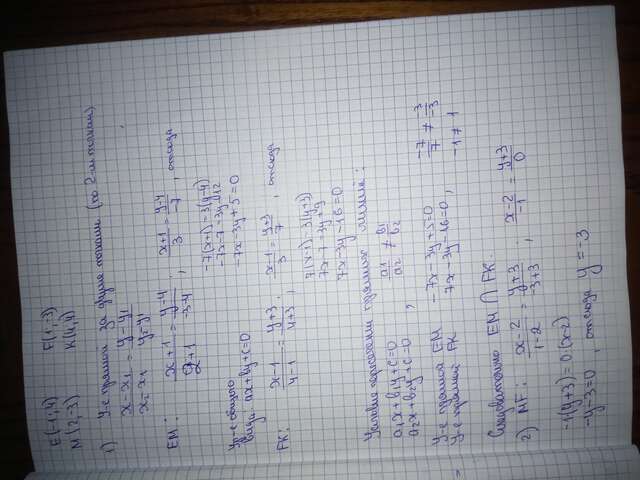 E(-1,4) F(1,-3)
M(2,-3) K(4,4)
1) Ур-е прямой за двумя точками (по 2-м точкам)
x-x₁ / x₂-x₁ = y-y₁ / y₂-y₁
EM: x+1 / 2+1 = y-4 / -3-4 , x+1 / 3 = y-4 / -7 , отсюда
-7(x+1)=3(y-4)
-7x-7=3y-12
-7x-3y+5=0
Ур-е общего
вида: ax+by+c=0
FK: x-1 / 4-1 = y+3 / 4+3 , x-1 / 3 = y+3 / 7 , отсюда
7(x-1)=3(y+3)
7x-7=3y+9
7x-3y-16=0
Условие пересечения прямых линий:
a₁x+b₁y+c=0
a₂x+b₂y+c=0 , a₁ / a₂ ≠ b₁ / b₂
У-е прямой EM -7x-3y+5=0
У-е прямой FK 7x-3y-16=0 , -7 / 7 ≠ -3 / -3
-1≠1
Следовательно EM ∩ FK.
2) MF: x-2 / 1-2 = y+3 / -3+3 , x-2 / -1 = y+3 / 0
-1(y+3)=0·(x-2)
-y-3=0 , отсюда y=-3